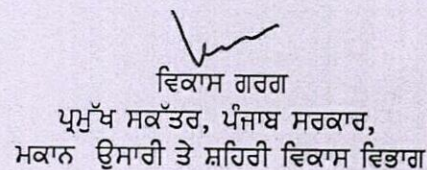 ਵਿਕਾਸ ਗਰਗ
ਪ੍ਰਮੁੱਖ ਸਕੱਤਰ, ਪੰਜਾਬ ਸਰਕਾਰ,
ਮਕਾਨ ਉਸਾਰੀ ਤੇ ਸ਼ਹਿਰੀ ਵਿਕਾਸ ਵਿਭਾਗ